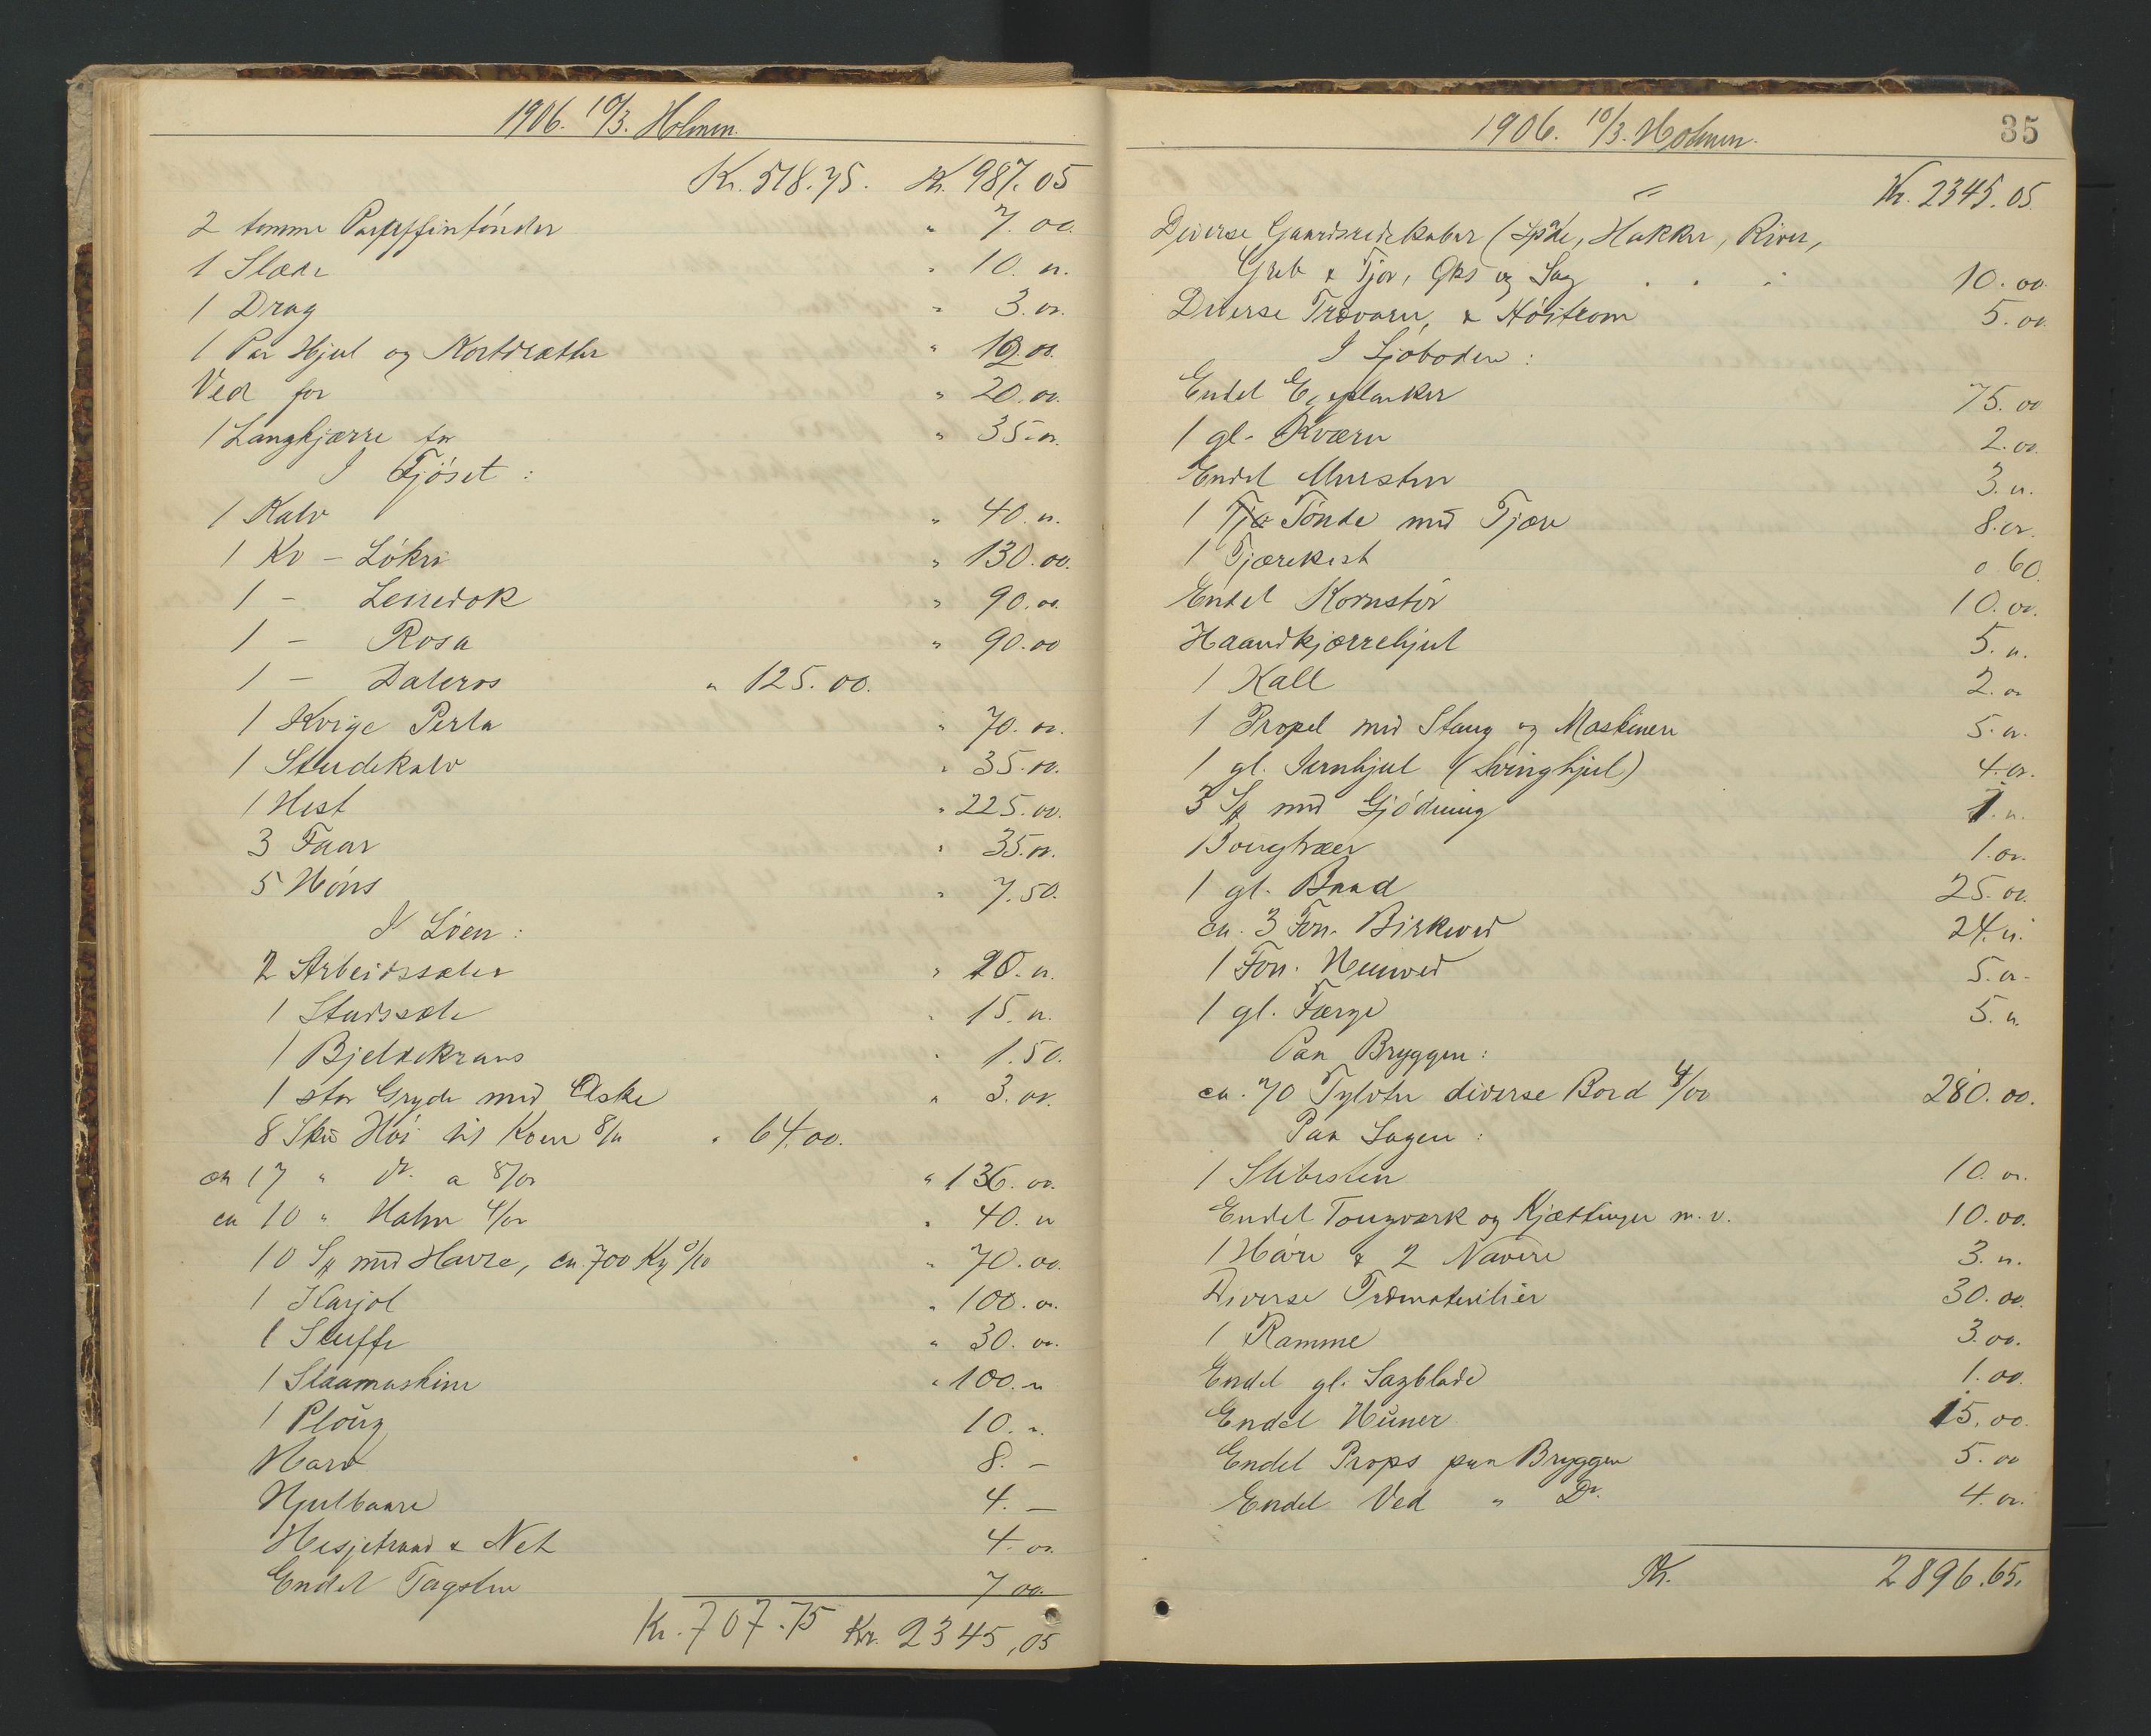 1906. 10/3. Holmen.
Kr. 518.75. Kr. 987.05
2 tomme Paraffintønder " 7.00.
1 Slæde " 10.00.
1 Drag " 3.00.
1 Par Hjul og Kortdrætter " 12.00.
Ved for " 20.00.
1 Langkjærre for " 35.00.
I Fjøset :
1 Kalv " 40.00.
1 Ko – Løkri " 130.00.
1 – " 90.00.
1 – Rosa " 90.00
1 – Daleros " 125.00.
1 Kvige Perla " 70.00.
1 Studekalv " 35.00.
1 Hest " 225.00.
3 Faar " 35.00.
5 Høns " 7.50.
I Løen :
2 Arbeidssæler " 20.00.
1 Studssæle " 15.00.
1 Bjeldekrans " 1.50.
1 stor Gryde med Aske " 3.00.
8 Skd Høi til Koen 8/00 " 64.00.
ca 17 " Do. a 8/00 " 136.00.
ca 10 " Halm 4/00 " 40.00
10 Sk med Havre, ca. 700 Kg 0/10 " 70.00.
1 Karjol " 100.00.
1 Sluffe " 30.00.
1 Slaamaskine " 100.00
1 Ploug 10.00.
Harv 8. –
Hjulbaare 4. –
Hesjetraad & Net 4.00.
Endel Tagsten 7 00.
Kr. 707.75 Kr. 2345,05
1906. 10/3. Holmen. 35
" Kr. 2345.05.
Diverse Gaardsredskaber (Spde, Hakker, River,
Greb & Tjor, Øks og Sag . . . 10.00.
Diverse Trævarer, & Høitrom 5.00.
I Sjøboden :
Endel Egeplanker 75.00
1 gl. Kværn 2.00.
Endel Mursten 3.00.
1 Tjæ Tønde med Tjære 8.00.
1 Tjærekost 0 60.
Endel Kornstør 10.00.
Haandkjærrehjul 5.00.
1 Kall 2.00
1 Propel med Stang og Maskineri 5.00.
1 gl. Jernhjul (Svinghjul) 4.00.
3 Sk med Gjødning 1.00.
Bougtræer 1.00.
1 gl. Baad 25.00.
ca. 3 Fvn. Birkeved 24.00.
1 Fvn. Hunved 5.00.
1 gl. Færge 5.00.
Paa Bryggen :
ca. 70 Tylvter diverse Bord 4/00 280.00.
Paa Sagen :
1 Slibesten 10.00.
Endel Tougværk og Kjættinger m.v. 10.00.
1 Håre & 2 Navere 3.00.
Diverse Træmaterialier 30.00.
1 Ramme 3.00.
Endel gl. Sagblade 1.00.
Endel Huner 15.00.
Endel Props paa Bryggen 5.00
Endel Ved " Do. 4.00.
Kr. 2896.65.